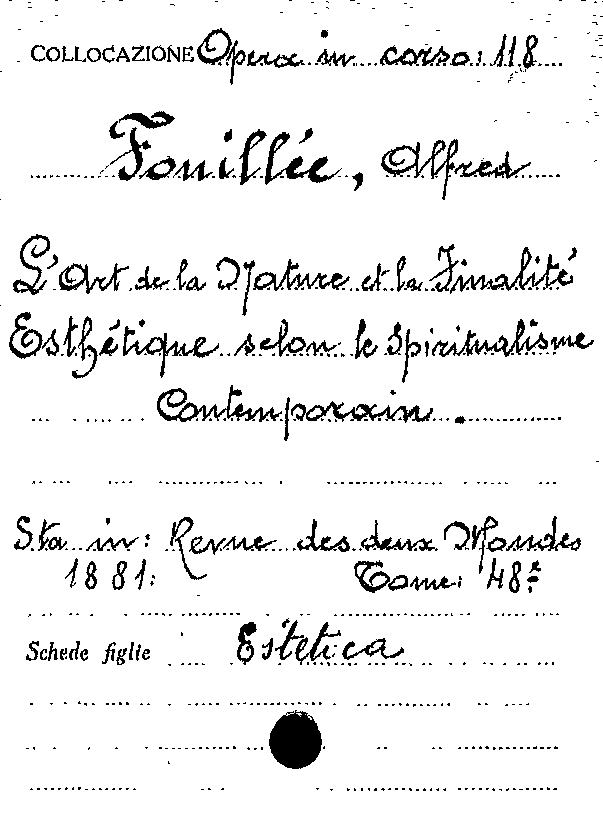 COLLOCAZIONE Opera in corso: 118
Fouillée, Alfred
L'Art de la Nature et la Finalité
Esthétique selon le Spiritualisme
Contemporain.
Sta in: Revue des deux Mondes
1881: Tome: 48º
Schede figlie Estetica